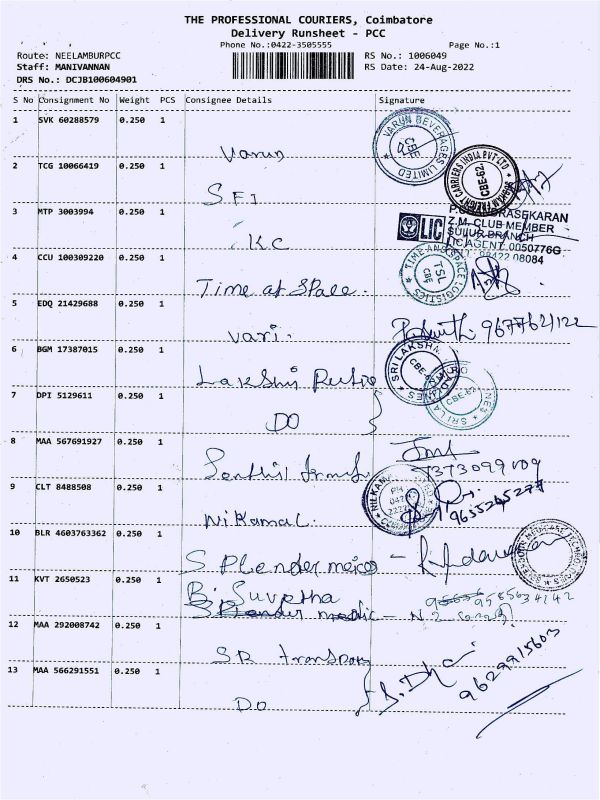 THE PROFESSIONAL COURIERS, Coimbatore
Delivery Runsheet - PCC
Phone No.:0422-3505555
Page No.:1
Route: NEELAMBURPCC
RS No.: 1006049
Staff: MANIVANNAN
RS Date: 24-Aug-2022
DRS No.: DCJB100604901
S No Consignment No Weight PCS Consignee Details Signature
1 SVK 60288579 0.250 1
Varun
VARUN BEVERAGES LIMITED CBE
2 TCG 10066419 0.250 1
SFI
FREIGHT CARRIERS INDIA PVT LTD CBE-62
3 MTP 3003994 0.250 1
KC
LIC
Z.M. CLUB MEMBER
SULUR BRANCH
LIC AGENT 0050776G
98422 08084
4 CCU 100309220 0.250 1
Time at Space.
TIME AND SPACE LOGISTICS TSL CBE
5 EDQ 21429688 0.250 1
vari.
9677621122
6 BGM 17387015 0.250 1
Lakshmi
SRI LAKSHMI
7 DPI 5129611 0.250 1
DO
CBE-62
8 MAA 567691927 0.250 1
Senthil
7373099109
9 CLT 8488508 0.250 1
Nikamal.
9655245277
10 BLR 4603763362 0.250 1
Splender
11 KVT 2650523 0.250 1
B. Suvetha
9585034142
12 MAA 292008742 0.250 1
SR transport
9629915603
13 MAA 566291551 0.250 1
DO